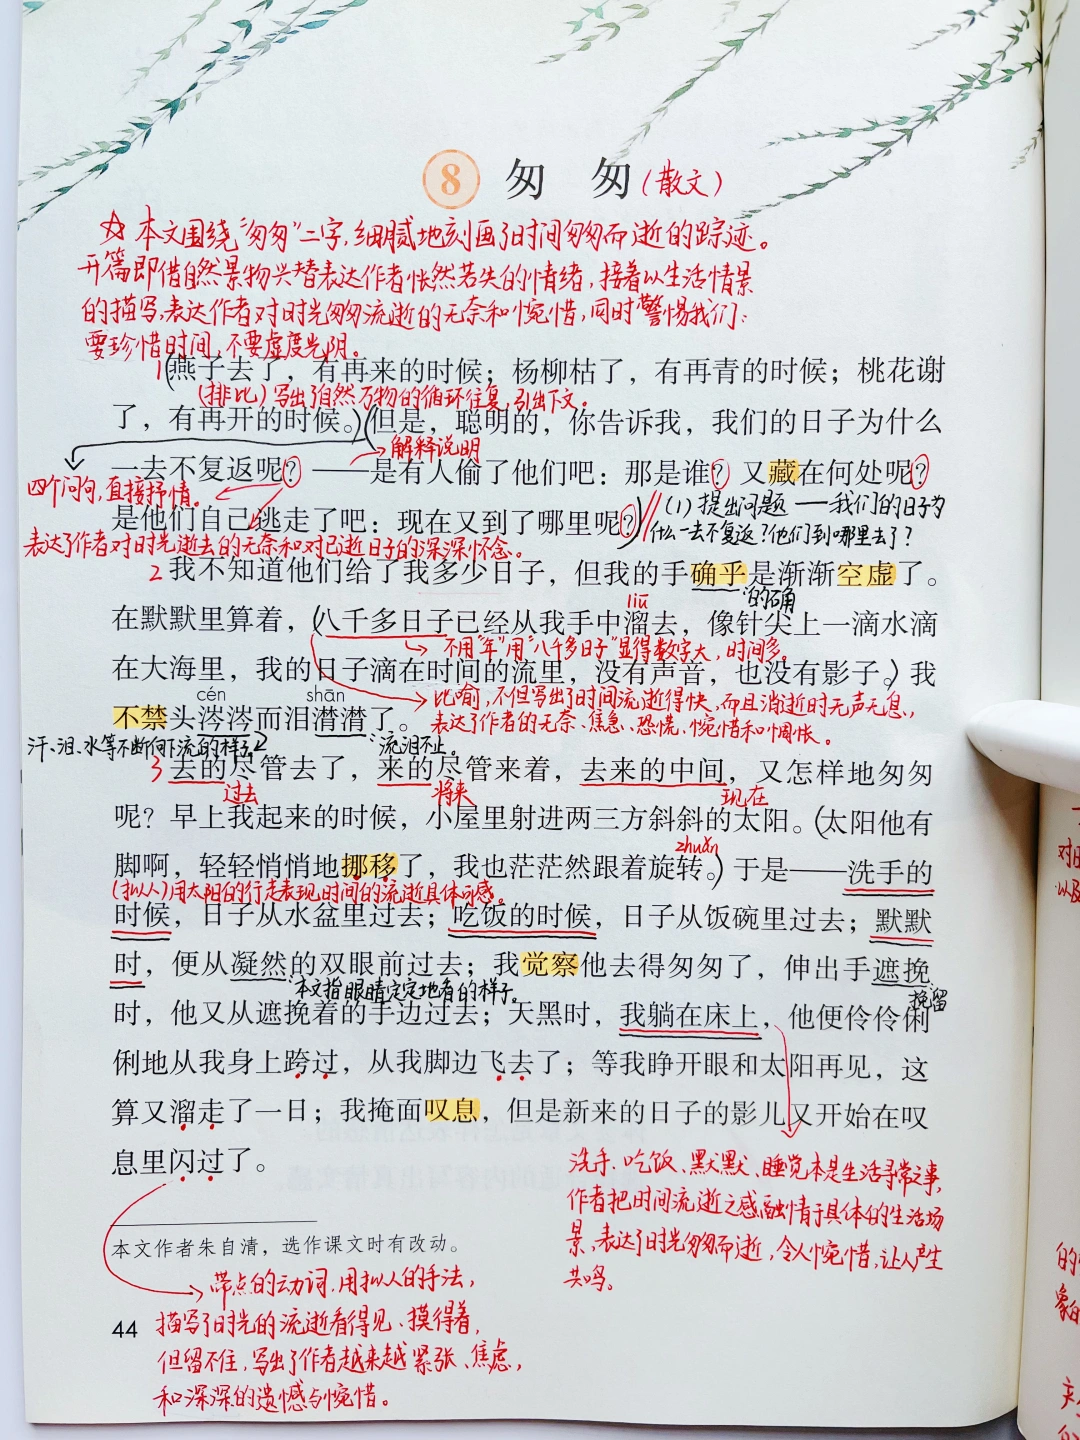 8 匆 匆（散文）
☆ 本文围绕“匆匆”二字，细腻地刻画了时间匆匆而逝的踪迹。
开篇即借自然景物兴替表达作者怅然若失的情绪，接着以生活情景
的描写，表达作者对时光匆匆流逝的无奈和惋惜，同时警惕我们：
要珍惜时间，不要虚度光阴。
1（燕子去了，有再来的时候；杨柳枯了，有再青的时候；桃花谢
（排比）写出了自然万物的循环往复，引出下文。
了，有再开的时候。）（但是，聪明的，你告诉我，我们的日子为什么
解释说明
一去不复返呢？——是有人偷了他们吧：那是谁？又藏在何处呢？
四个问句，直接抒情。
（1）提出问题——我们的日子为
是他们自己逃走了吧：现在又到了哪里呢？）
什么一去不复返？他们到哪里去了？
表达了作者对时光逝去的无奈和对已逝日子的深深怀念。
2 我不知道他们给了我多少日子，但我的手确乎是渐渐空虚了。
的确
liū
在默默里算着，（八千多日子已经从我手中溜去，像针尖上一滴水滴
不用“年”用“八千多日子”显得数字大，时间多。
在大海里，我的日子滴在时间的流里，没有声音，也没有影子。）我
cén shān
比喻，不但写出了时间流逝得快，而且消逝时无声无息，
不禁头涔涔而泪潸潸了。
表达了作者的无奈、焦急、恐慌、惋惜和惆怅。
汗、泪、水等不断向下流的样子。
流泪不止。
3 去的尽管去了，来的尽管来着，去来的中间，又怎样地匆匆
过去 将来 现在
呢？早上我起来的时候，小屋里射进两三方斜斜的太阳。（太阳他有
zhuǎn
脚啊，轻轻悄悄地挪移了，我也茫茫然跟着旋转。）于是——洗手的
（拟人）用太阳的行走表现时间的流逝具体可感。
时候，日子从水盆里过去；吃饭的时候，日子从饭碗里过去；默默
时，便从凝然的双眼前过去；我觉察他去得匆匆了，伸出手遮挽
本文指眼睛定定地看的样子。
挽留
时，他又从遮挽着的手边过去；天黑时，我躺在床上，他便伶伶俐
俐地从我身上跨过，从我脚边飞去了；等我睁开眼和太阳再见，这
算又溜走了一日；我掩面叹息，但是新来的日子的影儿又开始在叹
息里闪过了。
洗手、吃饭、默默、睡觉本是生活寻常之事，
作者把时间流逝之感融情于具体的生活场
景，表达了时光匆匆而逝，令人惋惜，让人产生
共鸣。
本文作者朱自清，选作课文时有改动。
带点的动词，用拟人的手法，
描写了时光的流逝看得见、摸得着，
但留不住，写出了作者越来越紧张、焦虑，
和深深的遗憾与惋惜。
44